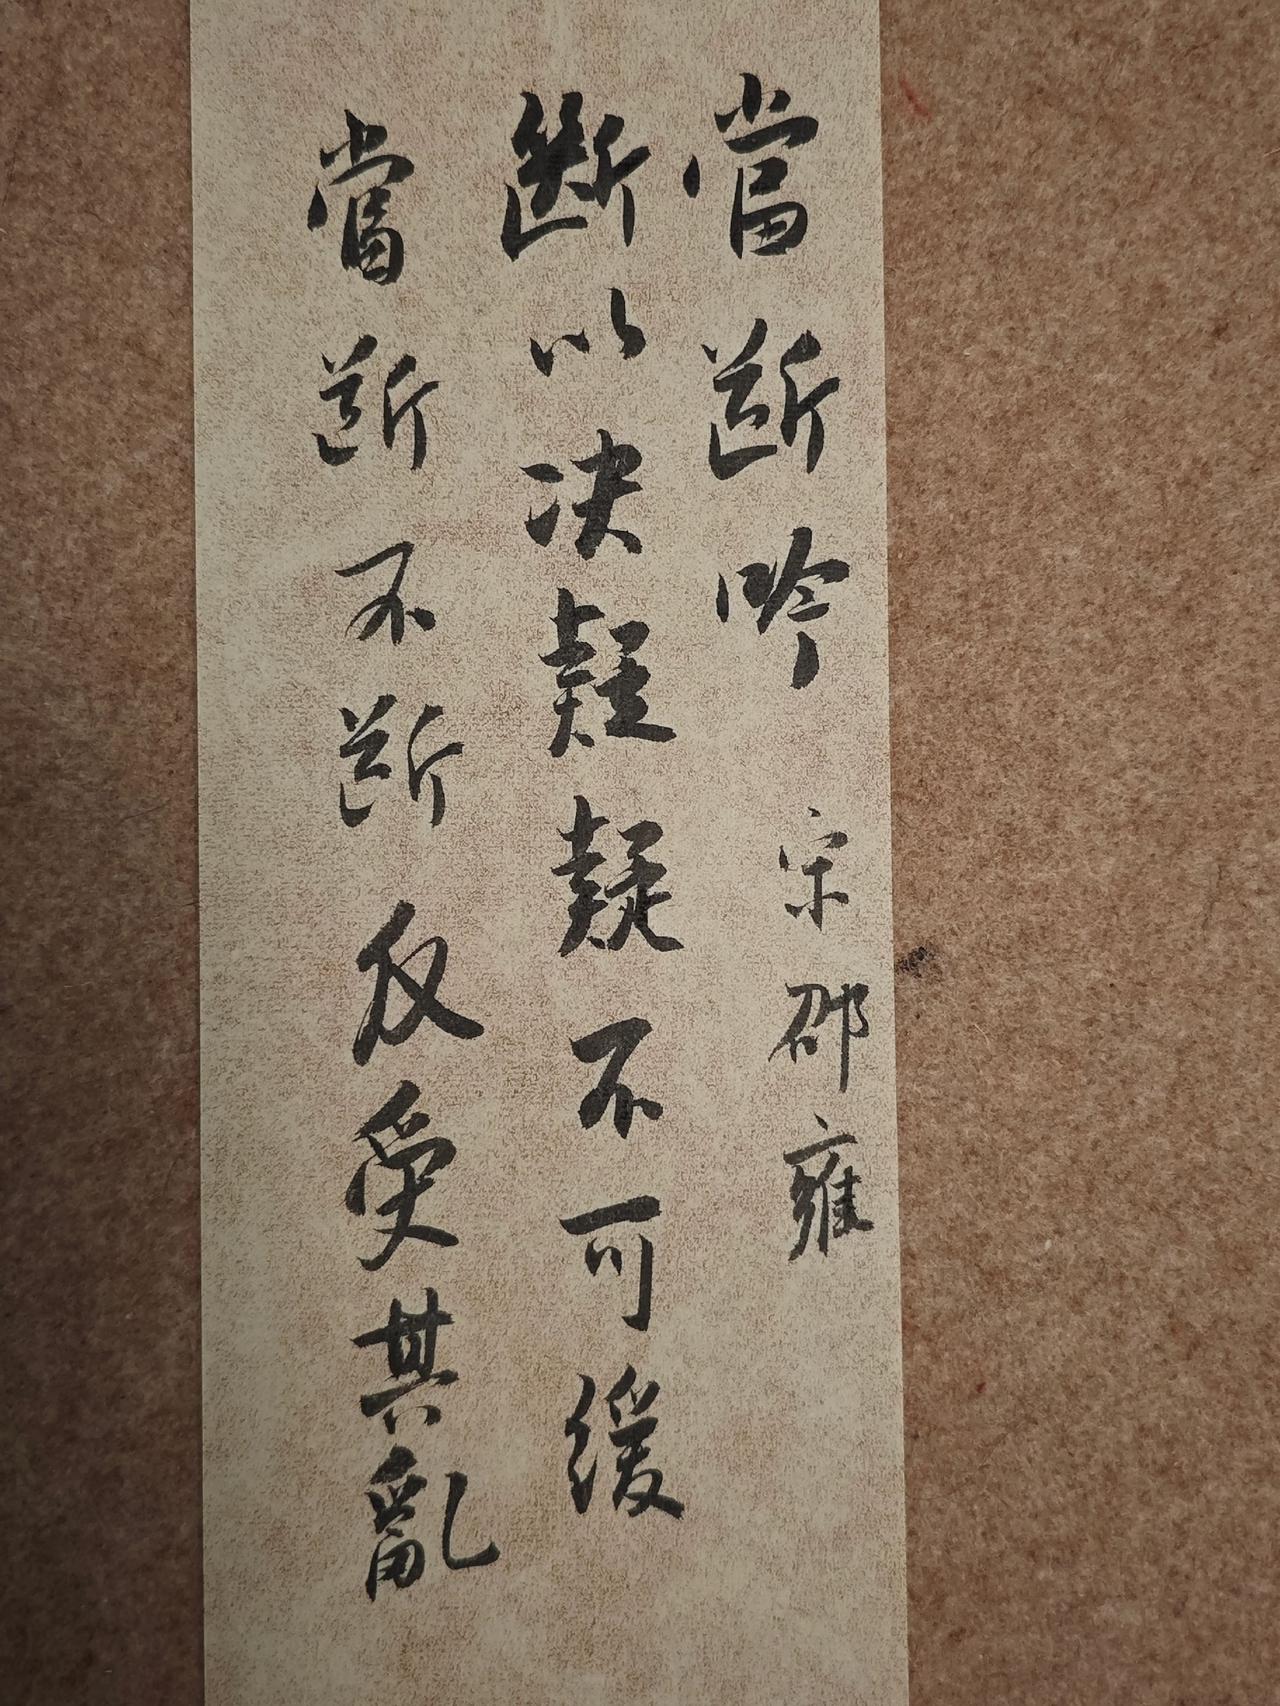 當斷吟 宋 邵雍
斷以决疑疑不可緩
當斷不斷反受其亂